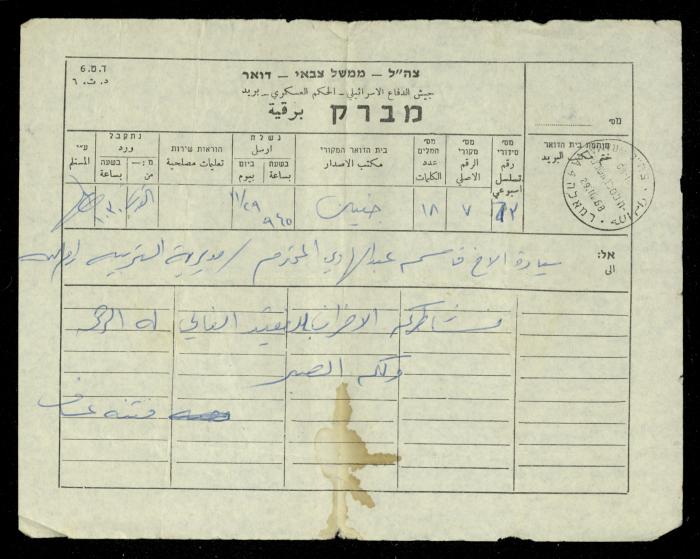 ד.ס.6
د.ت.٦
צה"ל – ממשל צבאי – דואר
جيش الدفاع الاسرائيلي - الحكم العسكري - بريد
מברק برقية
מס׳
חותמת בית הדואר
ختم مكتب البريد
מס׳ סידורי
رقم تسلسل اسبوعي
מס׳ מקורי
الرقم الاصلي
מס׳ המלים
عدد الكلمات
בית הדואר המקורי
مكتب الاصدار
נשלח
ارسل
בשעה
بساعة
ביום
بيوم
הוראות שירות
تعليمات مصلحية
נתקבל
ورد
מ: –
من
בשעה
بساعة
ע״י
المستلم
١٢
٧
١٨
جنين
١١/٢٩
٩٦٥
29.11.68
אל:
الى
سيادة الاخ قاسم عبد الهادي المحترم / مديرية التربيه رام الله
نشاطركم الاحزان بالفقيد الغالي له الرحمه
ولكم الصبر
فتنه عساف